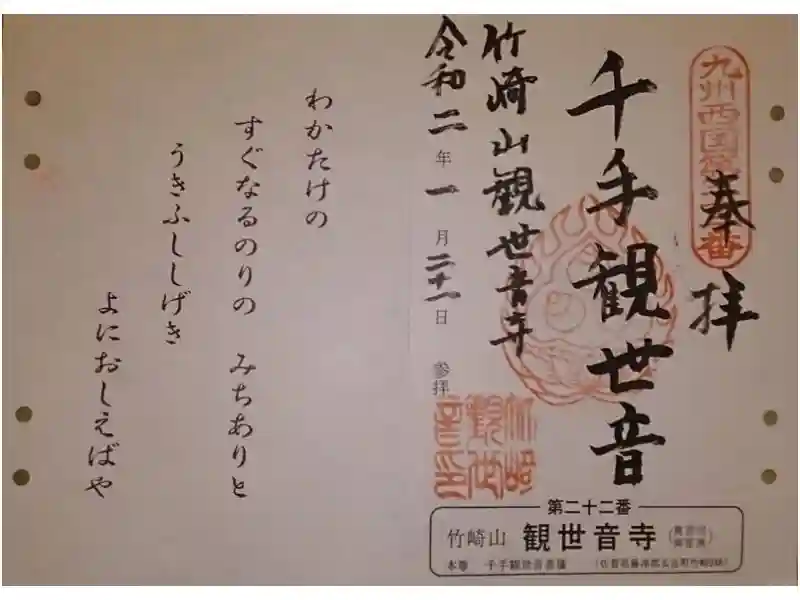 九州西国第
番
奉拝
千手観世音
竹崎山観世音寺
令和二年一月二十一日 参拝
竹崎
観世
音寺
第二十二番
竹崎山 観世音寺
本尊 千手観世音菩薩
わかたけの
すぐなるのりの みちありと
うきふししげき
よにおしえばや